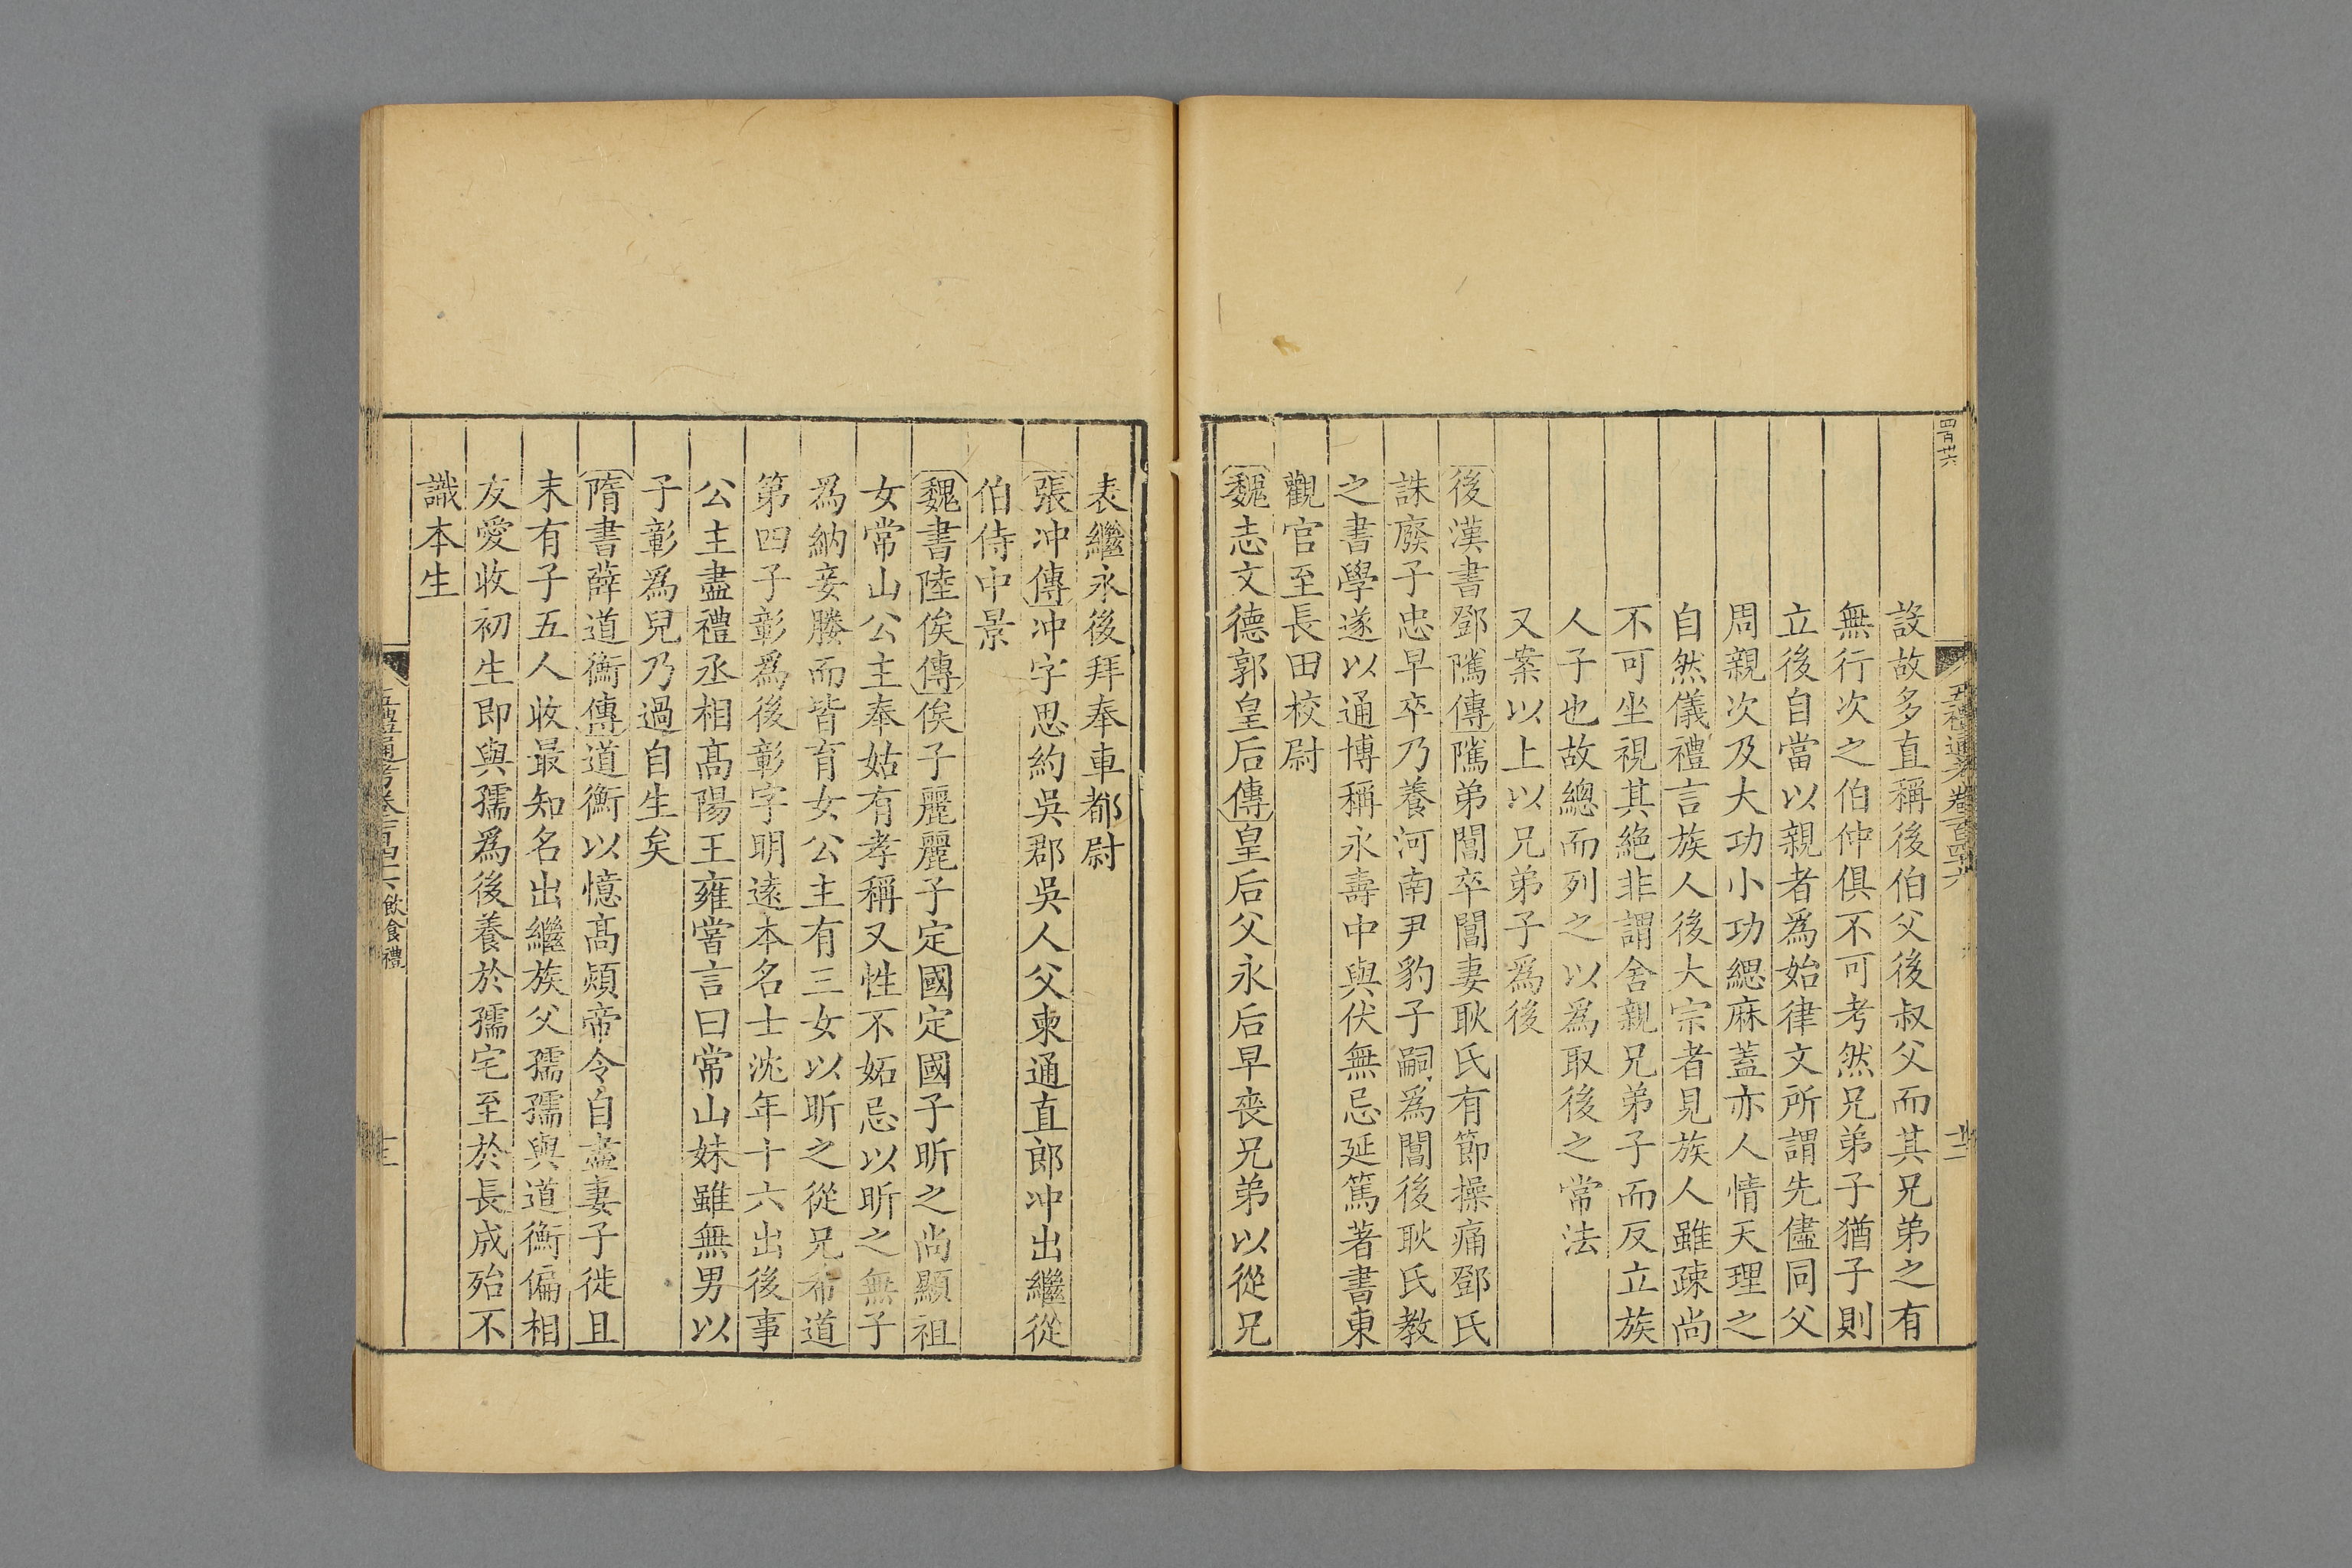 四百卅六
五禮通考卷一百四十六
設故多直稱後伯父後叔父而其兄弟之有
無行次之伯仲俱不可考然兄弟子猶子則
立後自當以親者爲始律文所謂先儘同父
周親次及大功小功緦麻蓋亦人情天理之
自然儀禮言族人後大宗者見族人雖疎尚
不可坐視其絶非謂舍親兄弟子而反立族
人子也故總而列之以爲取後之常法
又案以上以兄弟子爲後
後漢書鄧騭傳騭弟閶卒閶妻耿氏有節操痛鄧氏
誅廢子忠早卒乃養河南尹豹子嗣爲閶後耿氏教
之書學遂以通博稱永壽中與伏無忌延篤著書東
觀官至長田校尉
魏志文德郭皇后傳皇后父永后早喪兄弟以從兄
表繼永後拜奉車都尉
張冲傳冲字思約吳郡吳人父柬通直郎冲出繼從
伯侍中景
魏書陸俟傳俟子麗麗子定國定國子昕之尚顯祖
女常山公主奉姑有孝稱又性不妬忌以昕之無子
爲納妾媵而皆育女公主有三女以昕之從兄希道
第四子彰爲後彰字明遠本名士沈年十六出後事
公主盡禮丞相髙陽王雍嘗言曰常山妹雖無男以
子彰爲兒乃過自生矣
隋書薛道衡傳道衡以憶髙熲帝令自盡妻子徙且
末有子五人收最知名出繼族父孺孺與道衡偏相
友愛收初生即與孺爲後養於孺宅至於長成殆不
識本生
五禮通考卷一百四十六 飲食禮